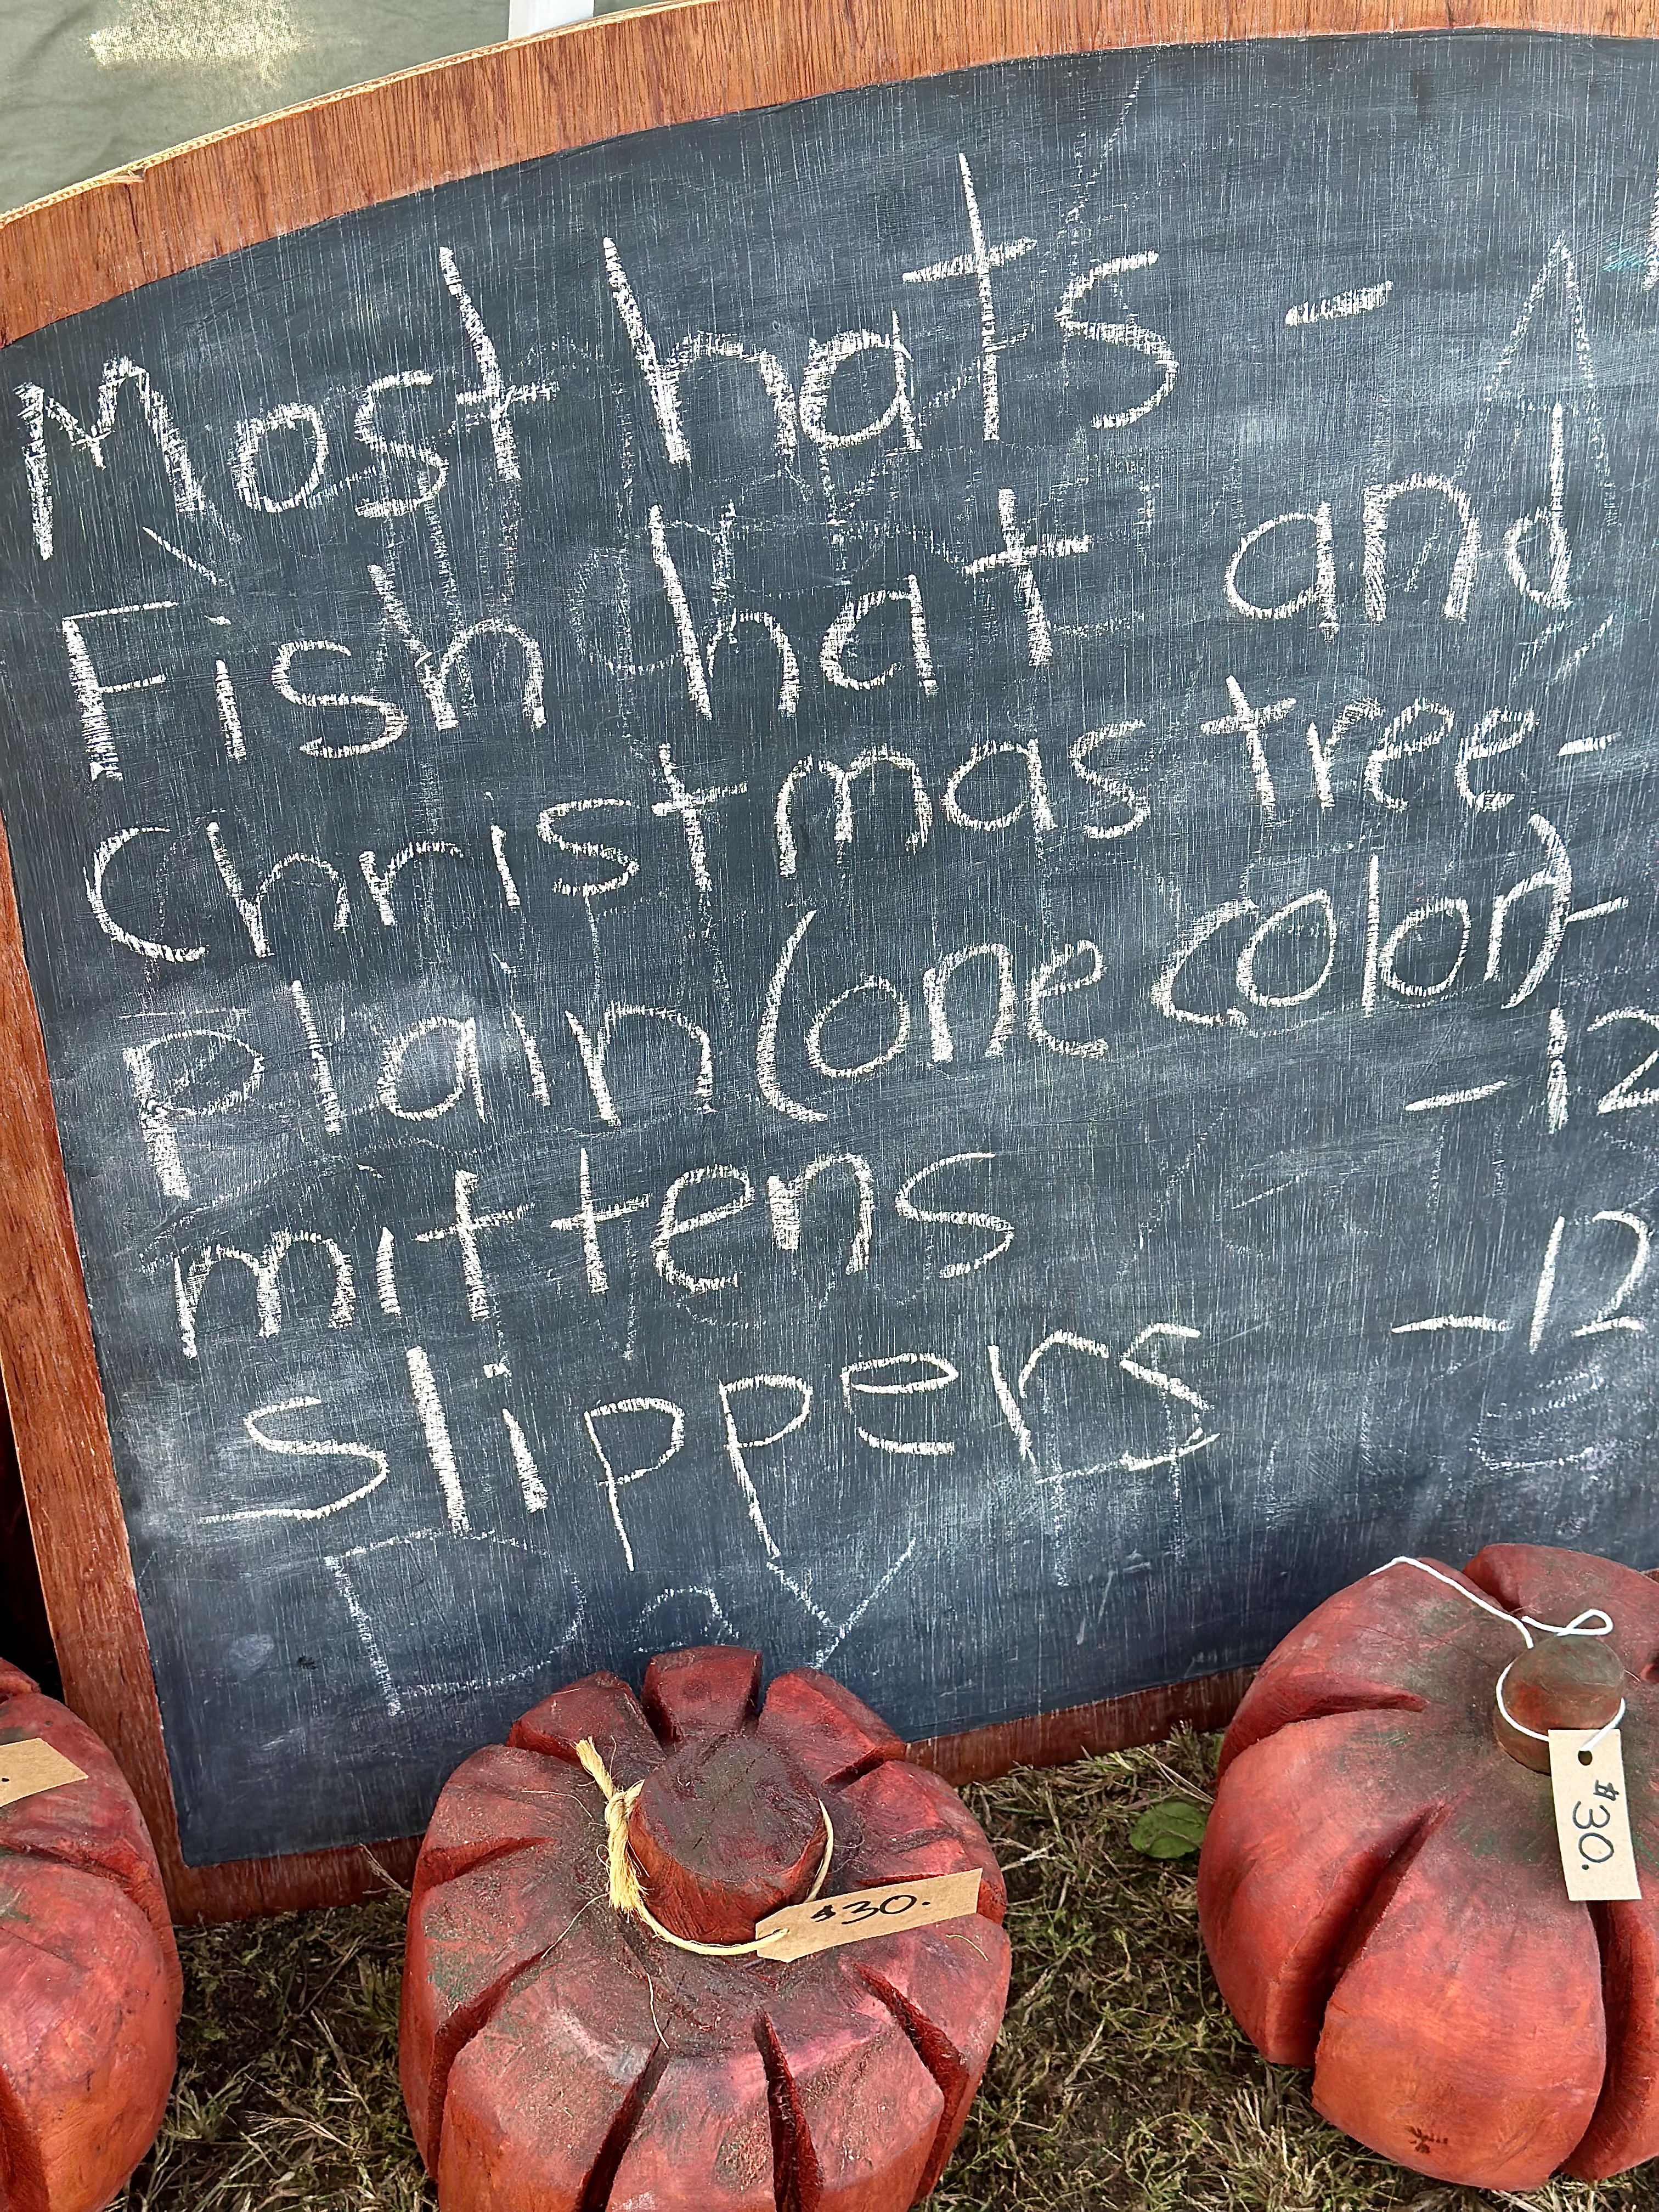 Most hats -
Fish hat and
Christmas tree -
Plain (one color) -
mittens - 12
slippers - 12
Day
$30.
$30.